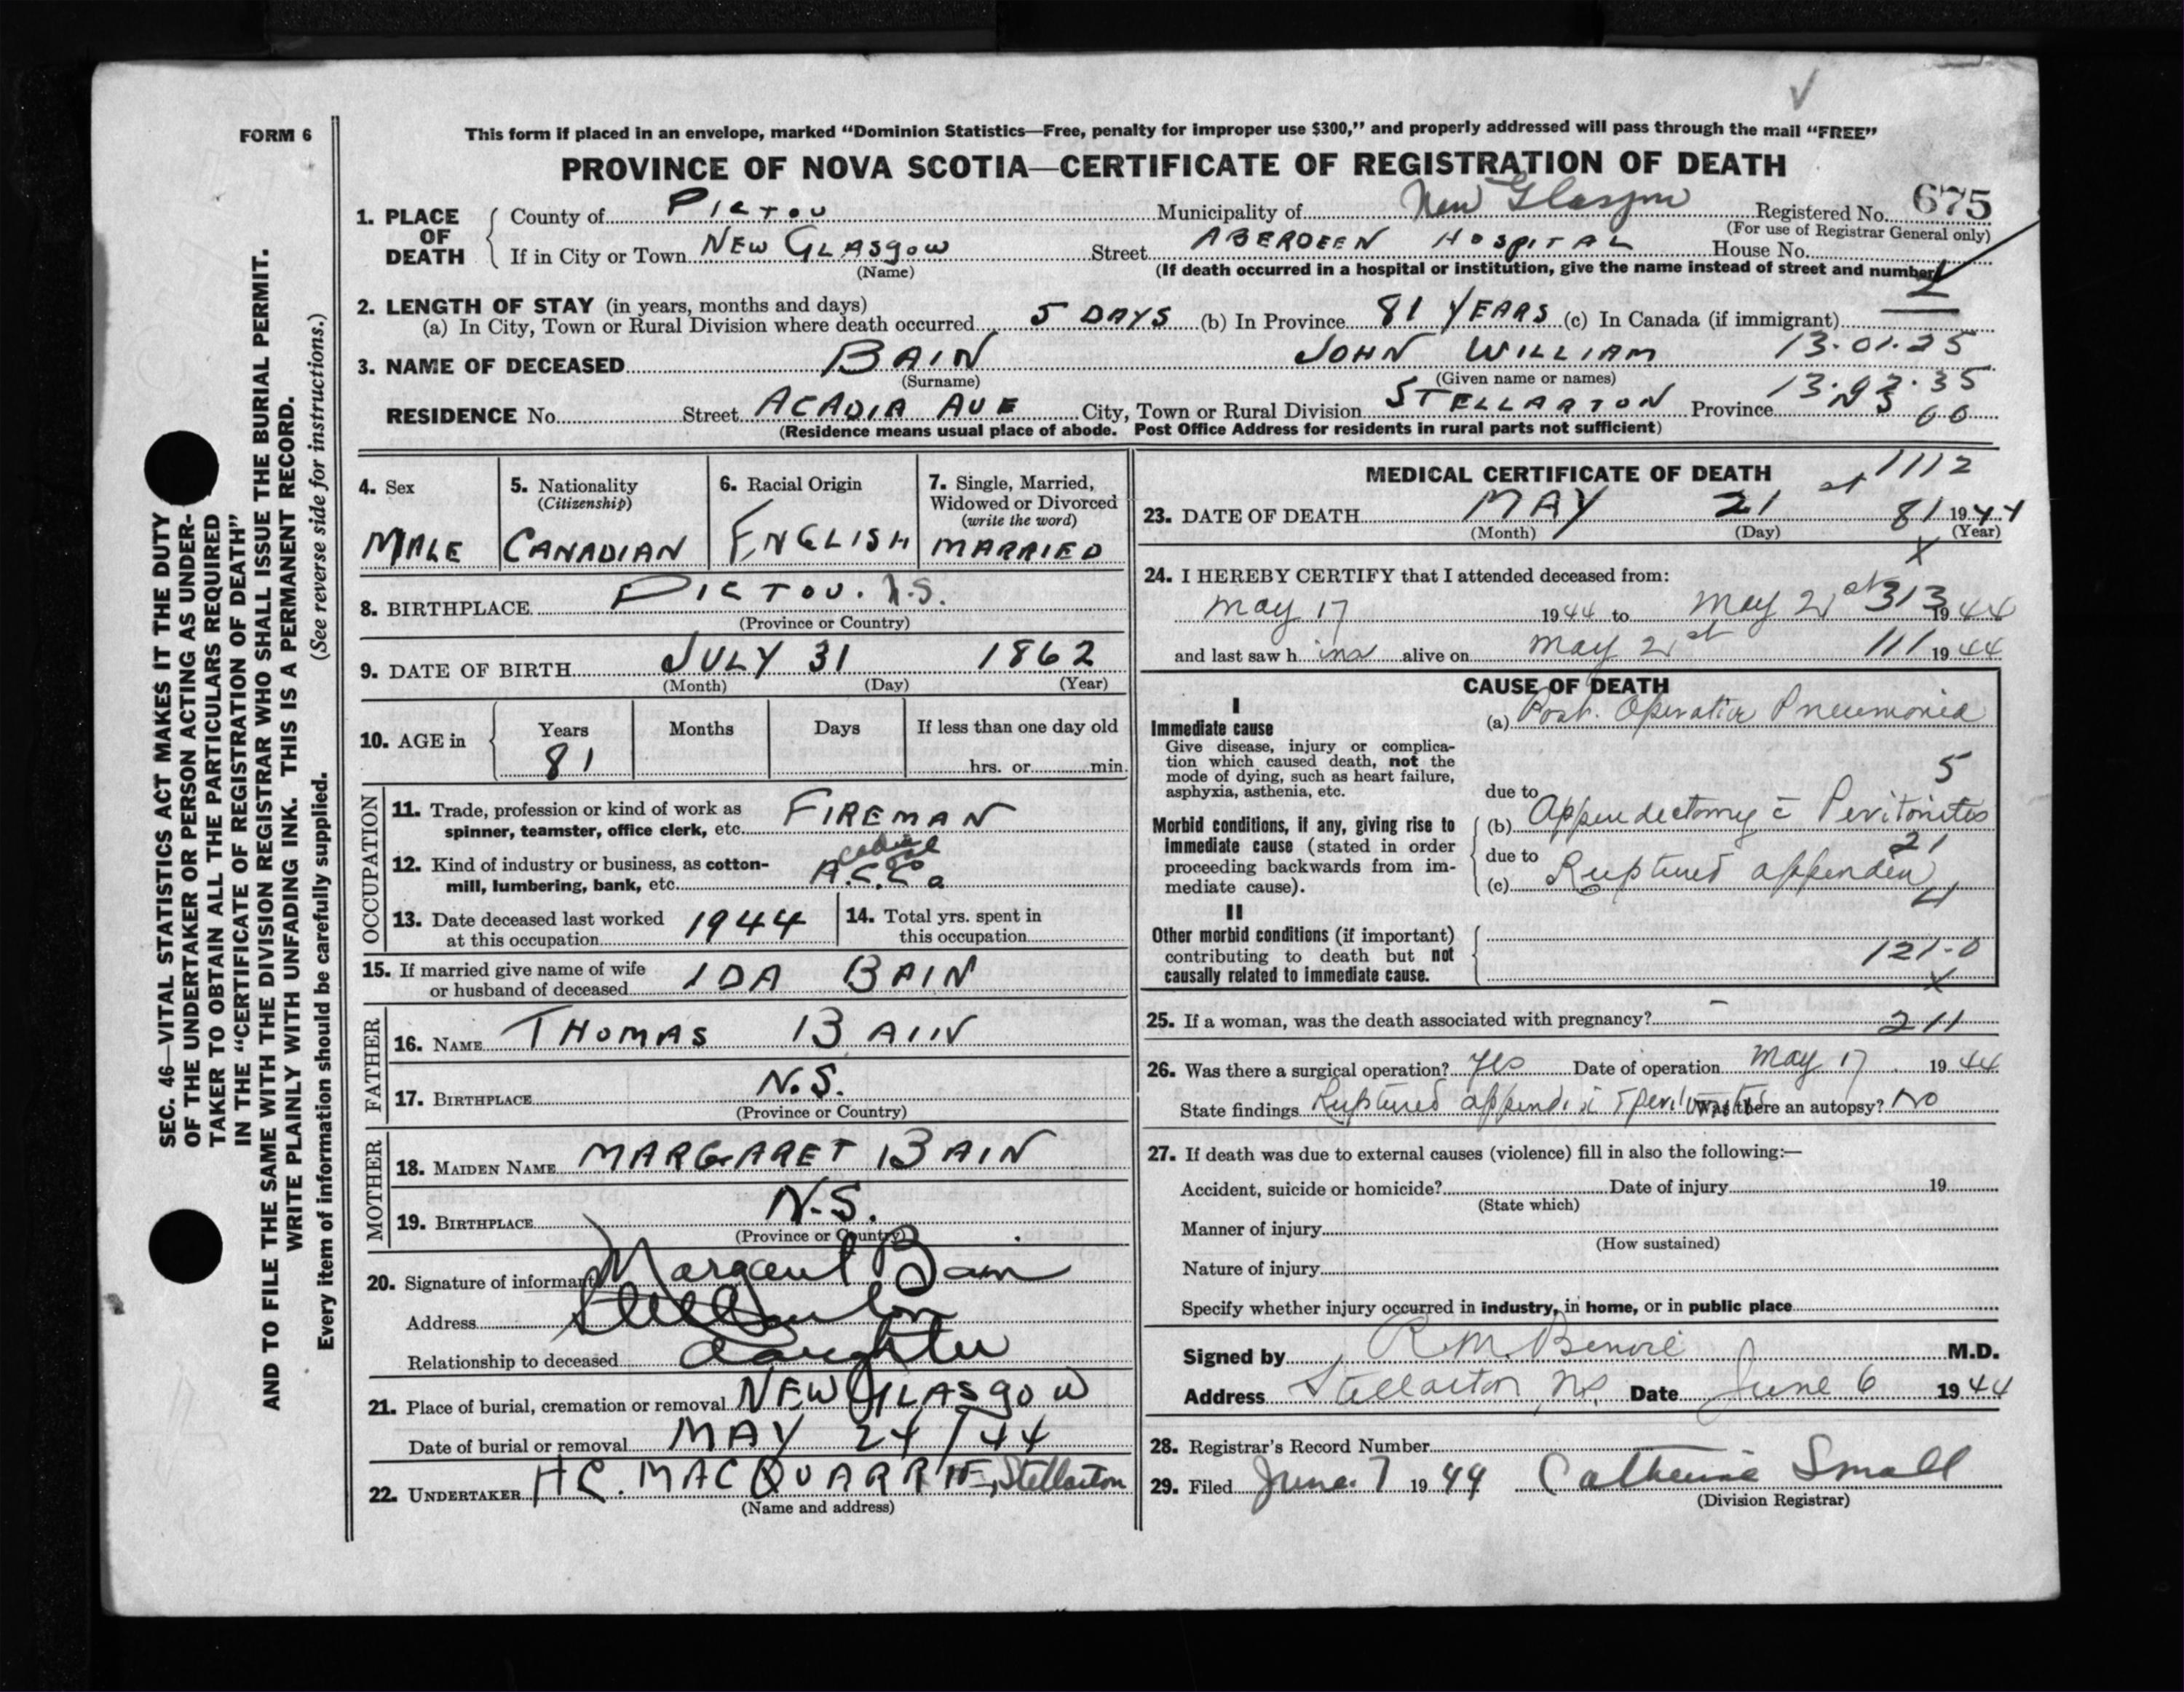 FORM 6
This form if placed in an envelope, marked “Dominion Statistics—Free, penalty for improper use $300,” and properly addressed will pass through the mail “FREE”
PROVINCE OF NOVA SCOTIA—CERTIFICATE OF REGISTRATION OF DEATH
1. PLACE OF DEATH
County of PICTOU Municipality of New Glasgow Registered No. 675
(For use of Registrar General only)
If in City or Town NEW GLASGOW Street ABERDEEN HOSPITAL House No.
(Name) (If death occurred in a hospital or institution, give the name instead of street and number)
2. LENGTH OF STAY (in years, months and days)
(a) In City, Town or Rural Division where death occurred 5 DAYS (b) In Province 81 YEARS (c) In Canada (if immigrant)
3. NAME OF DECEASED BAIN JOHN WILLIAM 13.01.25
(Surname) (Given name or names)
RESIDENCE No. Street ACADIA AVE City, Town or Rural Division STELLARTON Province NS
(Residence means usual place of abode. Post Office Address for residents in rural parts not sufficient)
4. Sex
MALE
5. Nationality
(Citizenship)
CANADIAN
6. Racial Origin
ENGLISH
7. Single, Married, Widowed or Divorced
(write the word)
MARRIED
8. BIRTHPLACE PICTOU. N.S.
(Province or Country)
9. DATE OF BIRTH JULY 31 1862
(Month) (Day) (Year)
10. AGE in Years Months Days If less than one day old
81 hrs. or min.
OCCUPATION
11. Trade, profession or kind of work as
spinner, teamster, office clerk, etc. FIREMAN
12. Kind of industry or business, as cotton-
mill, lumbering, bank, etc. A.C.Co
13. Date deceased last worked
at this occupation 1944
14. Total yrs. spent in
this occupation
15. If married give name of wife
or husband of deceased IDA BAIN
FATHER
16. NAME THOMAS BAIN
17. BIRTHPLACE N.S.
(Province or Country)
MOTHER
18. MAIDEN NAME MARGARET BAIN
19. BIRTHPLACE N.S.
(Province or Country)
20. Signature of informant Margaret Bain
Address Stellarton
Relationship to deceased daughter
21. Place of burial, cremation or removal NEW GLASGOW
Date of burial or removal MAY 24/44
22. UNDERTAKER HC. MACQUARRIE, Stellarton
(Name and address)
MEDICAL CERTIFICATE OF DEATH
1112
23. DATE OF DEATH MAY 21st 81 1944
(Month) (Day) (Year)
x
24. I HEREBY CERTIFY that I attended deceased from:
May 17 1944 to May 21st 313 1944
and last saw h im alive on May 21st 111 1944
CAUSE OF DEATH
I
Immediate cause
Give disease, injury or complica-
tion which caused death, not the
mode of dying, such as heart failure,
asphyxia, asthenia, etc.
(a) Post. Operative Pneumonia
5
due to
Morbid conditions, if any, giving rise to
immediate cause (stated in order
proceeding backwards from im-
mediate cause).
(b) Appendectomy c̄ Peritonitis
21
due to
(c) Ruptured appendix
4
II
Other morbid conditions (if important)
contributing to death but not
causally related to immediate cause.
121-0
x
25. If a woman, was the death associated with pregnancy? –
211
26. Was there a surgical operation? Yes Date of operation May 17 1944
State findings Ruptured appendix c̄ peritonitis Was there an autopsy? No
27. If death was due to external causes (violence) fill in also the following:—
Accident, suicide or homicide? Date of injury 19
(State which)
Manner of injury
(How sustained)
Nature of injury
Specify whether injury occurred in industry, in home, or in public place
Signed by R. M. M.D.
Address Stellarton, NS Date June 6 1944
28. Registrar's Record Number
29. Filed June 7 1944 Catherine Small
(Division Registrar)
SEC. 46—VITAL STATISTICS ACT MAKES IT THE DUTY
OF THE UNDERTAKER OR PERSON ACTING AS UNDER-
TAKER TO OBTAIN ALL THE PARTICULARS REQUIRED
IN THE “CERTIFICATE OF REGISTRATION OF DEATH”
AND TO FILE THE SAME WITH THE DIVISION REGISTRAR WHO SHALL ISSUE THE BURIAL PERMIT.
WRITE PLAINLY WITH UNFADING INK. THIS IS A PERMANENT RECORD.
Every item of information should be carefully supplied. (See reverse side for instructions.)